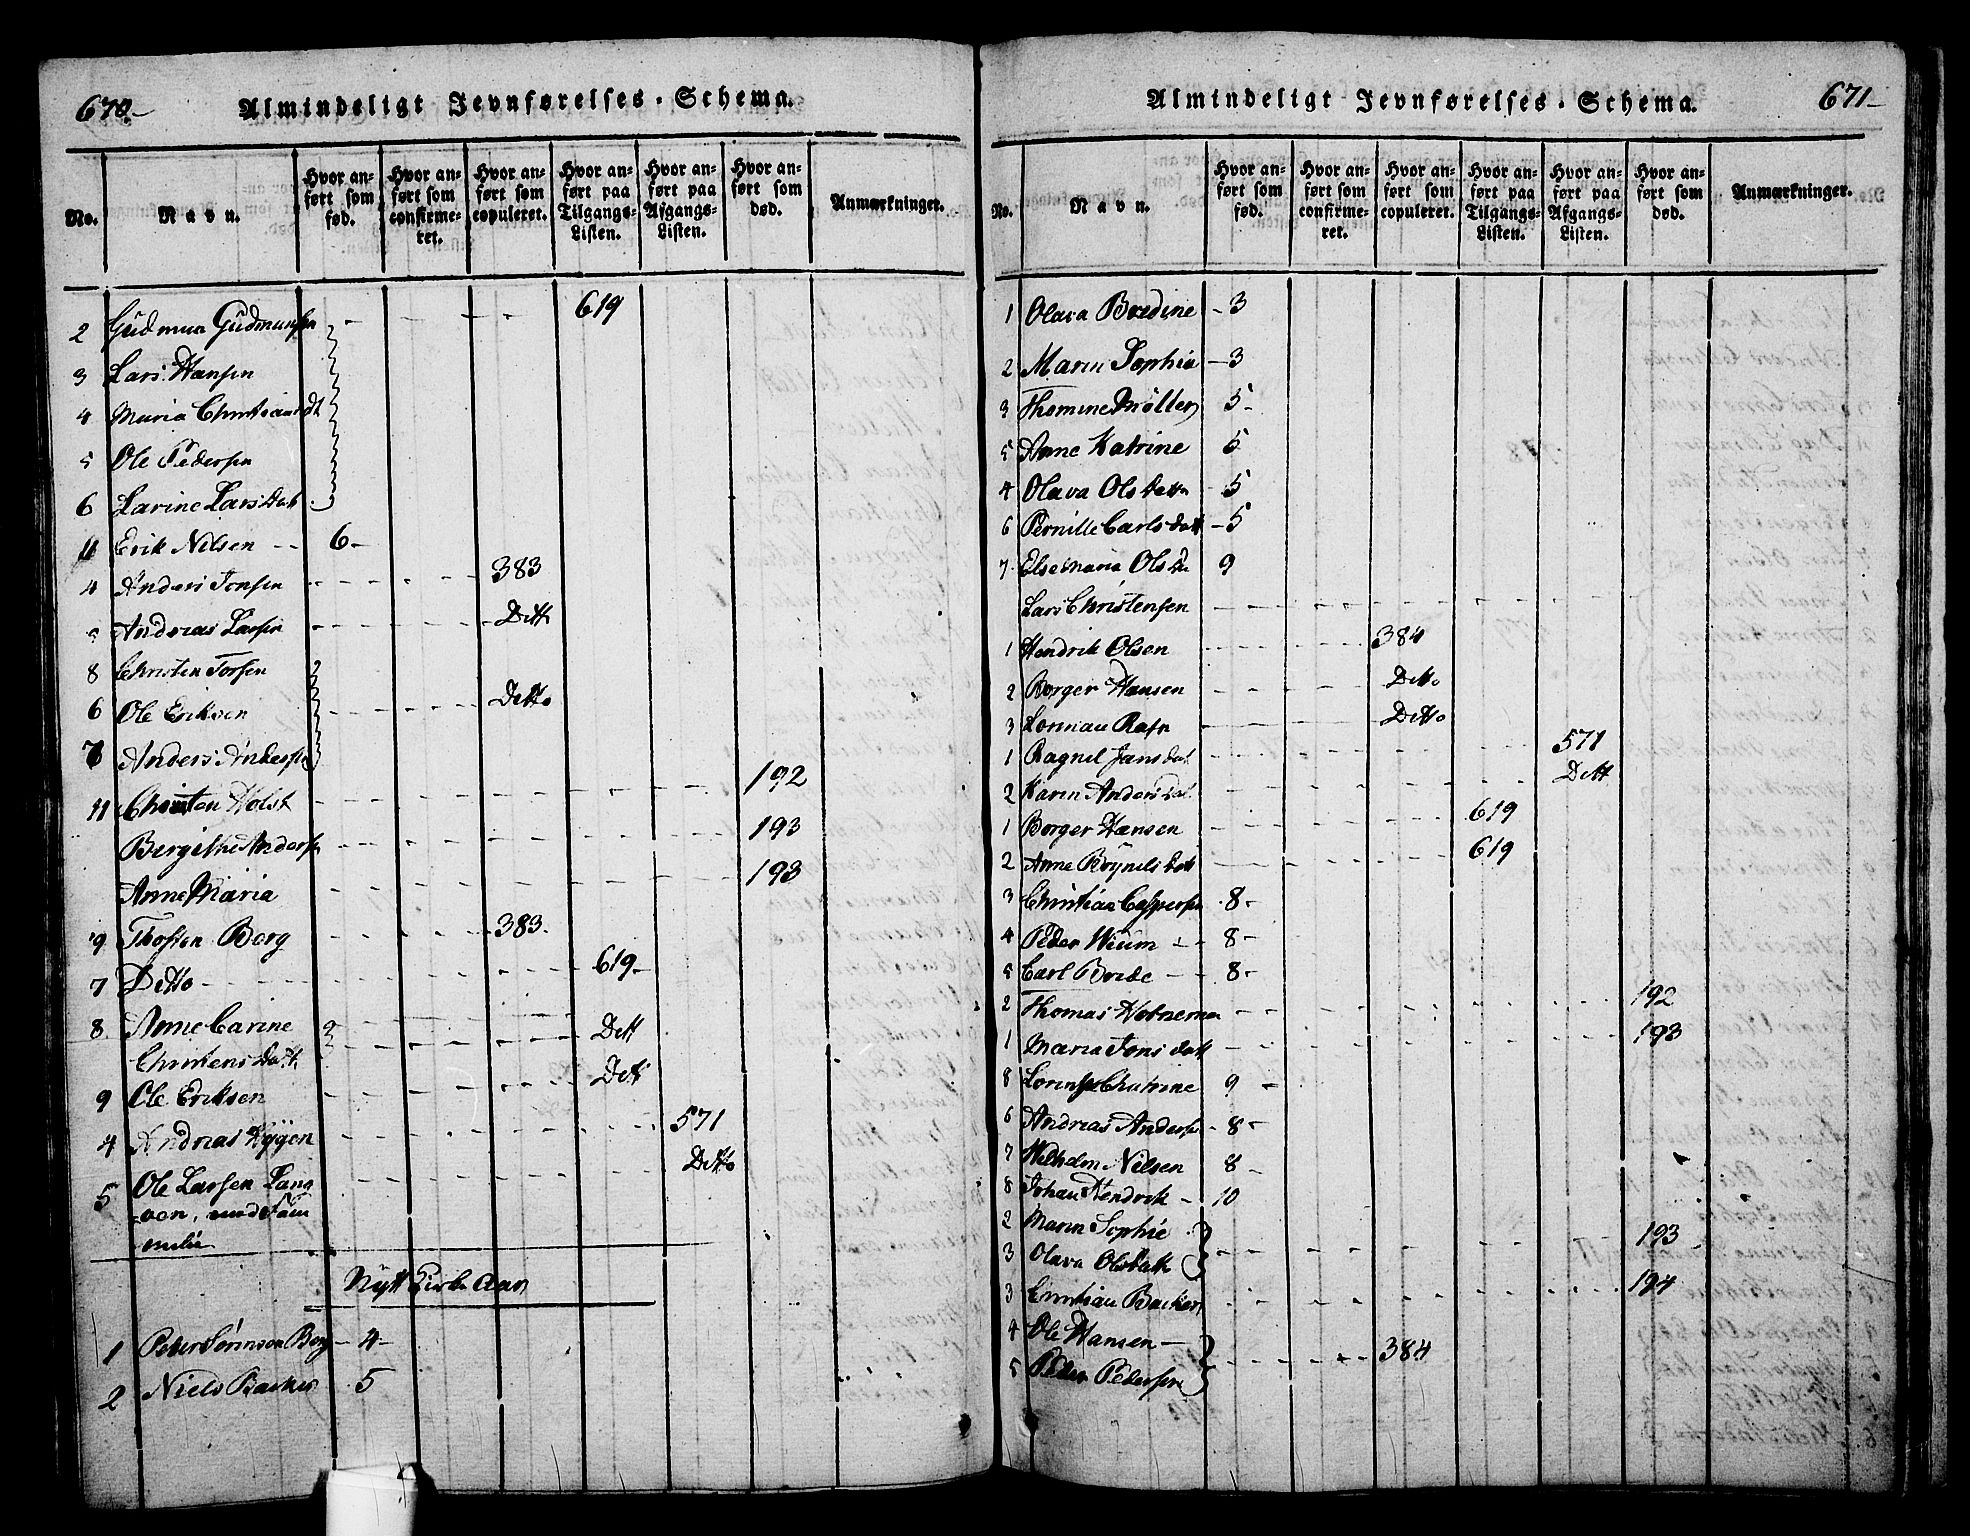 670.
Almindeligt Jevnførelses-Schema.
No.
Navn.
Hvor an-
ført som
fød.
Hvor an-
ført som
confirme-
ret.
Hvor an-
ført som
copuleret.
Hvor an-
ført paa
Tilgangs-
Listen.
Hvor an-
ført paa
Afgangs-
Listen.
Hvor an-
ført som
død.
Anmærkninger.
2 Gudmun Gudmunsen 619
3 Lars Hansen
4 Maria
5 Ole Pedersen
6 Larine Lars Datt
Erik Nilsen -- 6-
4 Anders Jonsen 383
5 Andreas Larsen Ditto
8 Christen Torsen
6 Ole Eriksen Ditto
7 Anders Andersen
11 Christen Holst 192
Bergithe Anders 193
Anne Maria 193
9 Thosten Borg 383
7 Ditto 619-
8 Anne Carine Ditt
Christens Datt.
9 Ole Eriksen Ditt
4 Andreas Hygen 571
5 Ole Larsen Lang Ditto
=oen, med Fam
=milie
Nytt Kirke Aar
1 Peter Sørinsen Berg -4-
2 Niels Backer 5
671-
Almindeligt Jevnførelses-Schema.
No.
Navn.
Hvor an-
ført som
fød.
Hvor an-
ført som
confirme-
ret.
Hvor an-
ført som
copuleret.
Hvor an-
ført paa
Tilgangs-
Listen.
Hvor an-
ført paa
Afgangs-
Listen.
Hvor an-
ført som
død.
Anmærkninger.
1 Olava Bredine - 3
2 Maren Sophia - 3
3 Thomine Møller 5-
5 Anne Katrine 5
4 Olava Ols Datt - 5
6 Pernille Carls datt - 5
7 Else Maria Ols Da 9
Lars Christensen
1 Hendrik Olsen 384
2 Borger Hansen Ditto
3 Rafn Ditto
1 Ragnel Jans dat 571
2 Karen Anders Dat. Ditt
1 Borger Hansen 619
2 Anne Datt 619
3 Christian Caspersen 8-
4 Peder Wium -- 8-
5 Carl Brede -- 8-
2 Thomas 192
1 Maria Jons datt 193
8 Chatrine 9 -
6 Andreas Anders - 8-
7 Wilhelm Nilsen 8 -
8 Johan Hendrik - 10
2 Maren Sophie 193
3 Olava Olsdatt
3 Backer 194
4 Ole Hansen -
5 Peder Pedersen 384